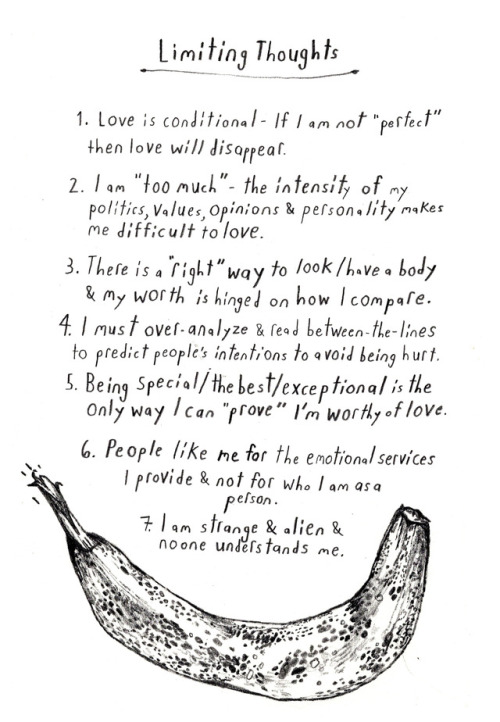 Limiting Thoughts
1. Love is conditional - If I am not "perfect"
then love will disappear.
2. I am "too much" - the intensity of my
politics, values, opinions & personality makes
me difficult to love.
3. There is a "right" way to look/have a body
& my worth is hinged on how I compare.
4. I must over-analyze & read between-the-lines
to predict people's intentions to avoid being hurt.
5. Being special/the best/exceptional is the
only way I can "prove" I'm worthy of love.
6. People like me for the emotional services
I provide & not for who I am as a
person.
7. I am strange & alien &
no one understands me.